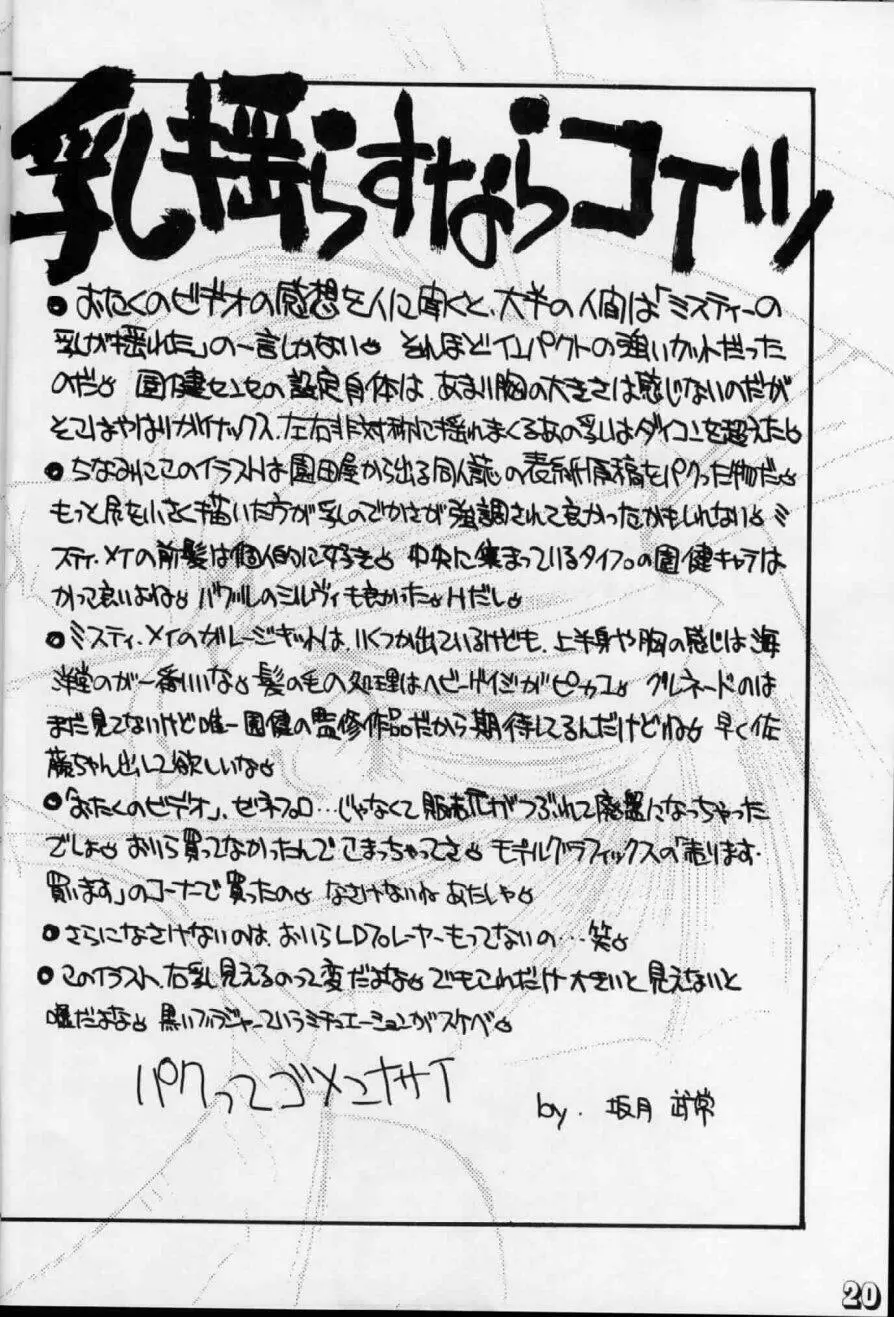 乳揺らすならコイツ
●おたくのビデオの感想を人に聞くと、大半の人間は「ミスティーの
乳が揺れた」の一言しかない。それほどインパクトの強いカットだった
のだ。園健センセの設定自体は、あまり胸の大きさは感じないのだが
そこはやはりガイナックス、左右非対称に揺れまくるあの乳はダイコンを超えた。
●ちなみにこのイラストは園田屋から出る同人誌の表紙原稿をパクった物だ。
もっと尻を小さく描いた方が乳のでかさが強調されて良かったかもしれない。ミ
スティ・メイの前髪は個人的に好き。中央に集まっているタイプの園健キャラは
かって良いよね。バウルのシルヴィも良かった。Hだし。
●ミスティ・メイのガレージキットは、いくつか出ているけども、上半身や胸の感じは海
洋堂のが一番いいな。髪の毛の処理はヘビーゲイジがピカコ。グルネードのは
まだ見てないけど唯一園健の監修作品だから期待してるんだけどね。早く佐
藤ちゃん出して欲しいな。
●「おたくのビデオ」、ゼネプロ…じゃなくて販売元がつぶれて廃盤になっちゃった
でしょ。おいら買ってなかったんでこまっちゃってさ。モデルグラフィックスの「売ります・
買います」のコーナーで買ったの。なさけないね あたしゃ。
●さらになさけないのは、おいらLDプレーヤーもってないの…笑。
●このイラスト、右乳見えるのって変だよな。でもこれだけ大きいと見えないと
嘘だよな。黒いブラジャーっていうシチュエーションがスケベ。
パクってゴメンナサイ
by. 坂月 武常
20